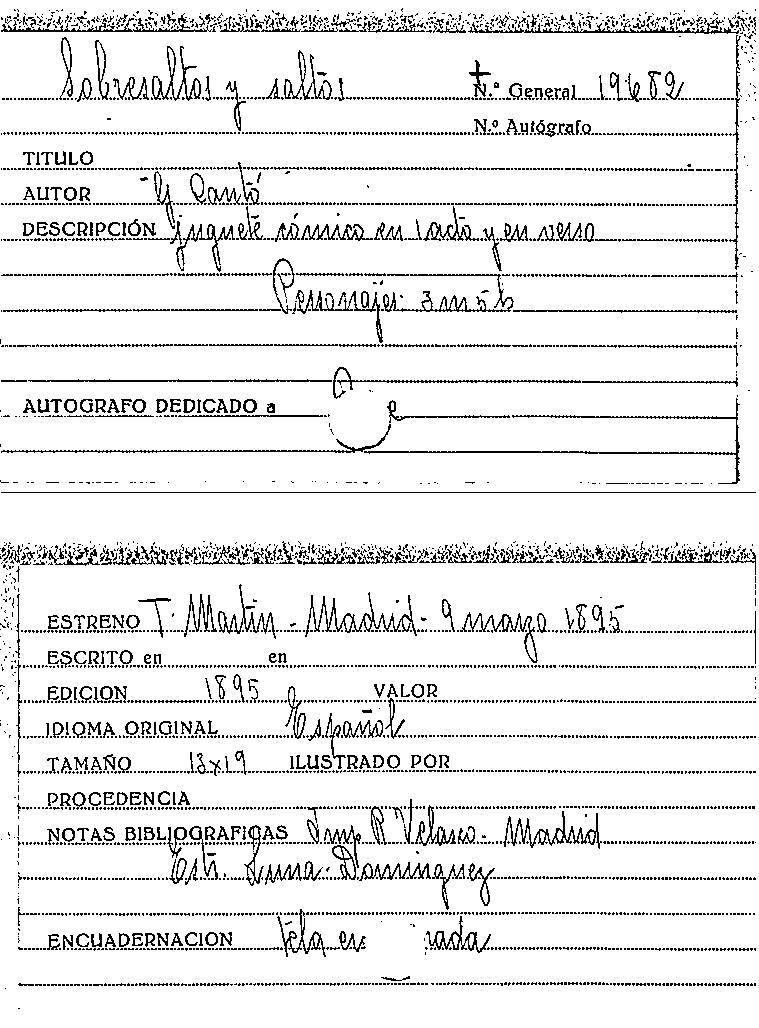 Sobresaltos y saltos N.º General 19682
N.º Autógrafo
TITULO
AUTOR "G Cantó"
DESCRIPCIÓN juguete cómico en 1 acto y en verso
Personajes: 3 m 5 h
AUTOGRAFO DEDICADO a
ESTRENO T. Martín - Madrid - 9 marzo 1895
ESCRITO en en
EDICION 1895 VALOR
IDIOMA ORIGINAL Español
TAMAÑO 13x19 ILUSTRADO POR
PROCEDENCIA
NOTAS BIBLIOGRAFICAS Imp R Velasco - Madrid
Estr. Luna - Dominguez
ENCUADERNACION tela